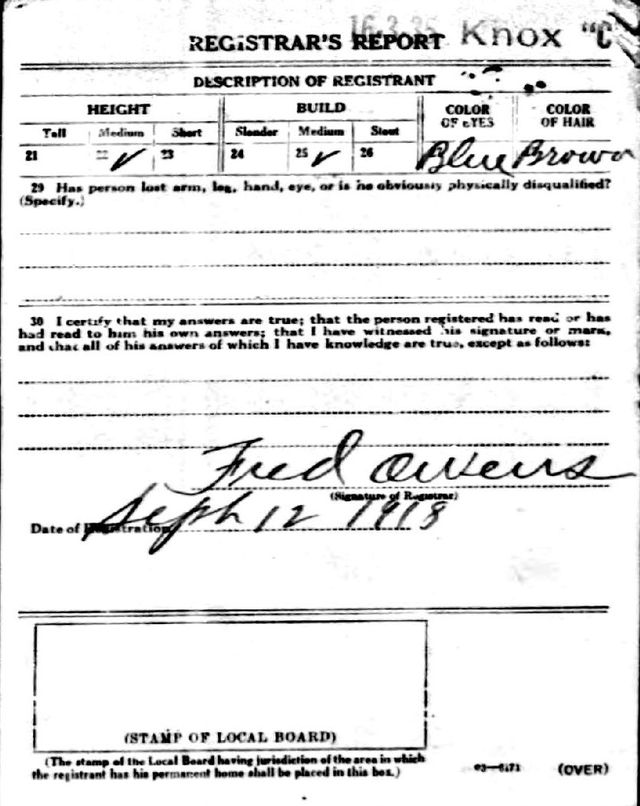 16-3-35 Knox "C"
REGISTRAR'S REPORT
DESCRIPTION OF REGISTRANT
HEIGHT BUILD COLOR OF EYES COLOR OF HAIR
Tall Medium Short Slender Medium Stout
21 22 ✓ 23 24 25 ✓ 26 Blue Brown
29 Has person lost arm, leg, hand, eye, or is he obviously physically disqualified?
(Specify.)
30 I certify that my answers are true; that the person registered has read or has
had read to him his own answers; that I have witnessed his signature or mark,
and that all of his answers of which I have knowledge are true, except as follows:
Fred Owens
(Signature of Registrar)
Date of Registration Seph 12 1918
(STAMP OF LOCAL BOARD)
(The stamp of the Local Board having jurisdiction of the area in which
the registrant has his permanent home shall be placed in this box.)
03—6171 (OVER)